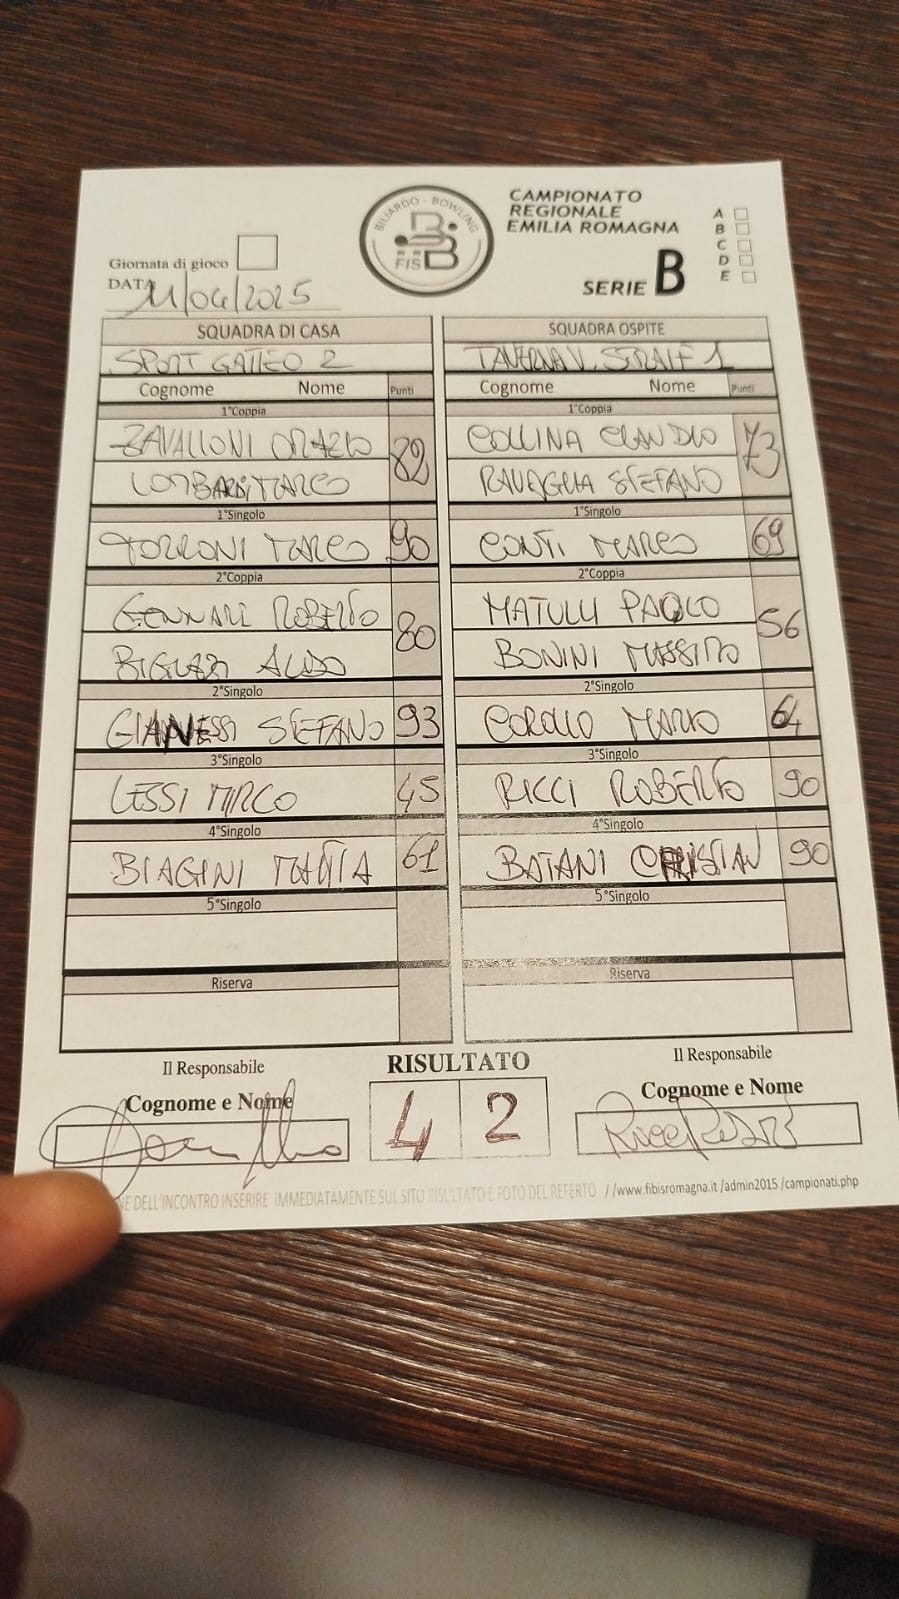 BILIARDO - BOWLING
FIS BB
CAMPIONATO
REGIONALE
EMILIA ROMAGNA
SERIE B
A
B
C
D
E
Giornata di gioco
DATA 11/04/2025
SQUADRA DI CASA SQUADRA OSPITE
SPORT GATTEO 2 TAVERNA V. 1
Cognome Nome Punti Cognome Nome Punti
1°Coppia 1°Coppia
ZAVALLONI ORAZIO 82 COLLINA CLAUDIO 73
LOMBARDI MARCO RAVAGLIA STEFANO
1°Singolo 1°Singolo
TORRONI MARCO 90 CONTI MARCO 69
2°Coppia 2°Coppia
GENNARI ROBERTO 80 MATULLI PAOLO 56
ALDO BONINI MASSIMO
2°Singolo 2°Singolo
GIANNESSI STEFANO 93 MARIO 64
3°Singolo 3°Singolo
LESSI MIRCO 45 RICCI ROBERTO 90
4°Singolo 4°Singolo
BIAGINI MATTIA 61 BATANI CRISTIAN 90
5°Singolo 5°Singolo
Riserva Riserva
Il Responsabile RISULTATO Il Responsabile
Cognome e Nome 4 2 Cognome e Nome
NE DELL'INCONTRO INSERIRE IMMEDIATAMENTE SUL SITO RISULTATO E FOTO DEL REFERTO //www.fibisromagna.it /admin2015 /campionati.php